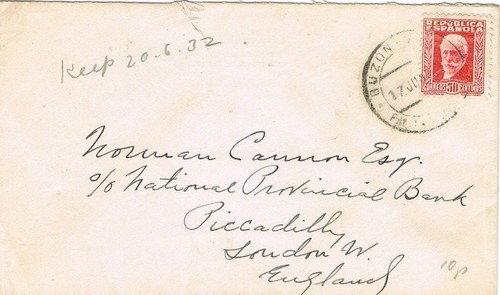 Keep 20-6.32
REPÚBLICA
ESPAÑOLA
BUZON
17 JUN
CORREOS 30 CENTIMOS
Norman Cannon Esq.
c/o National Provincial Bank
Piccadilly
London W.
England
10p